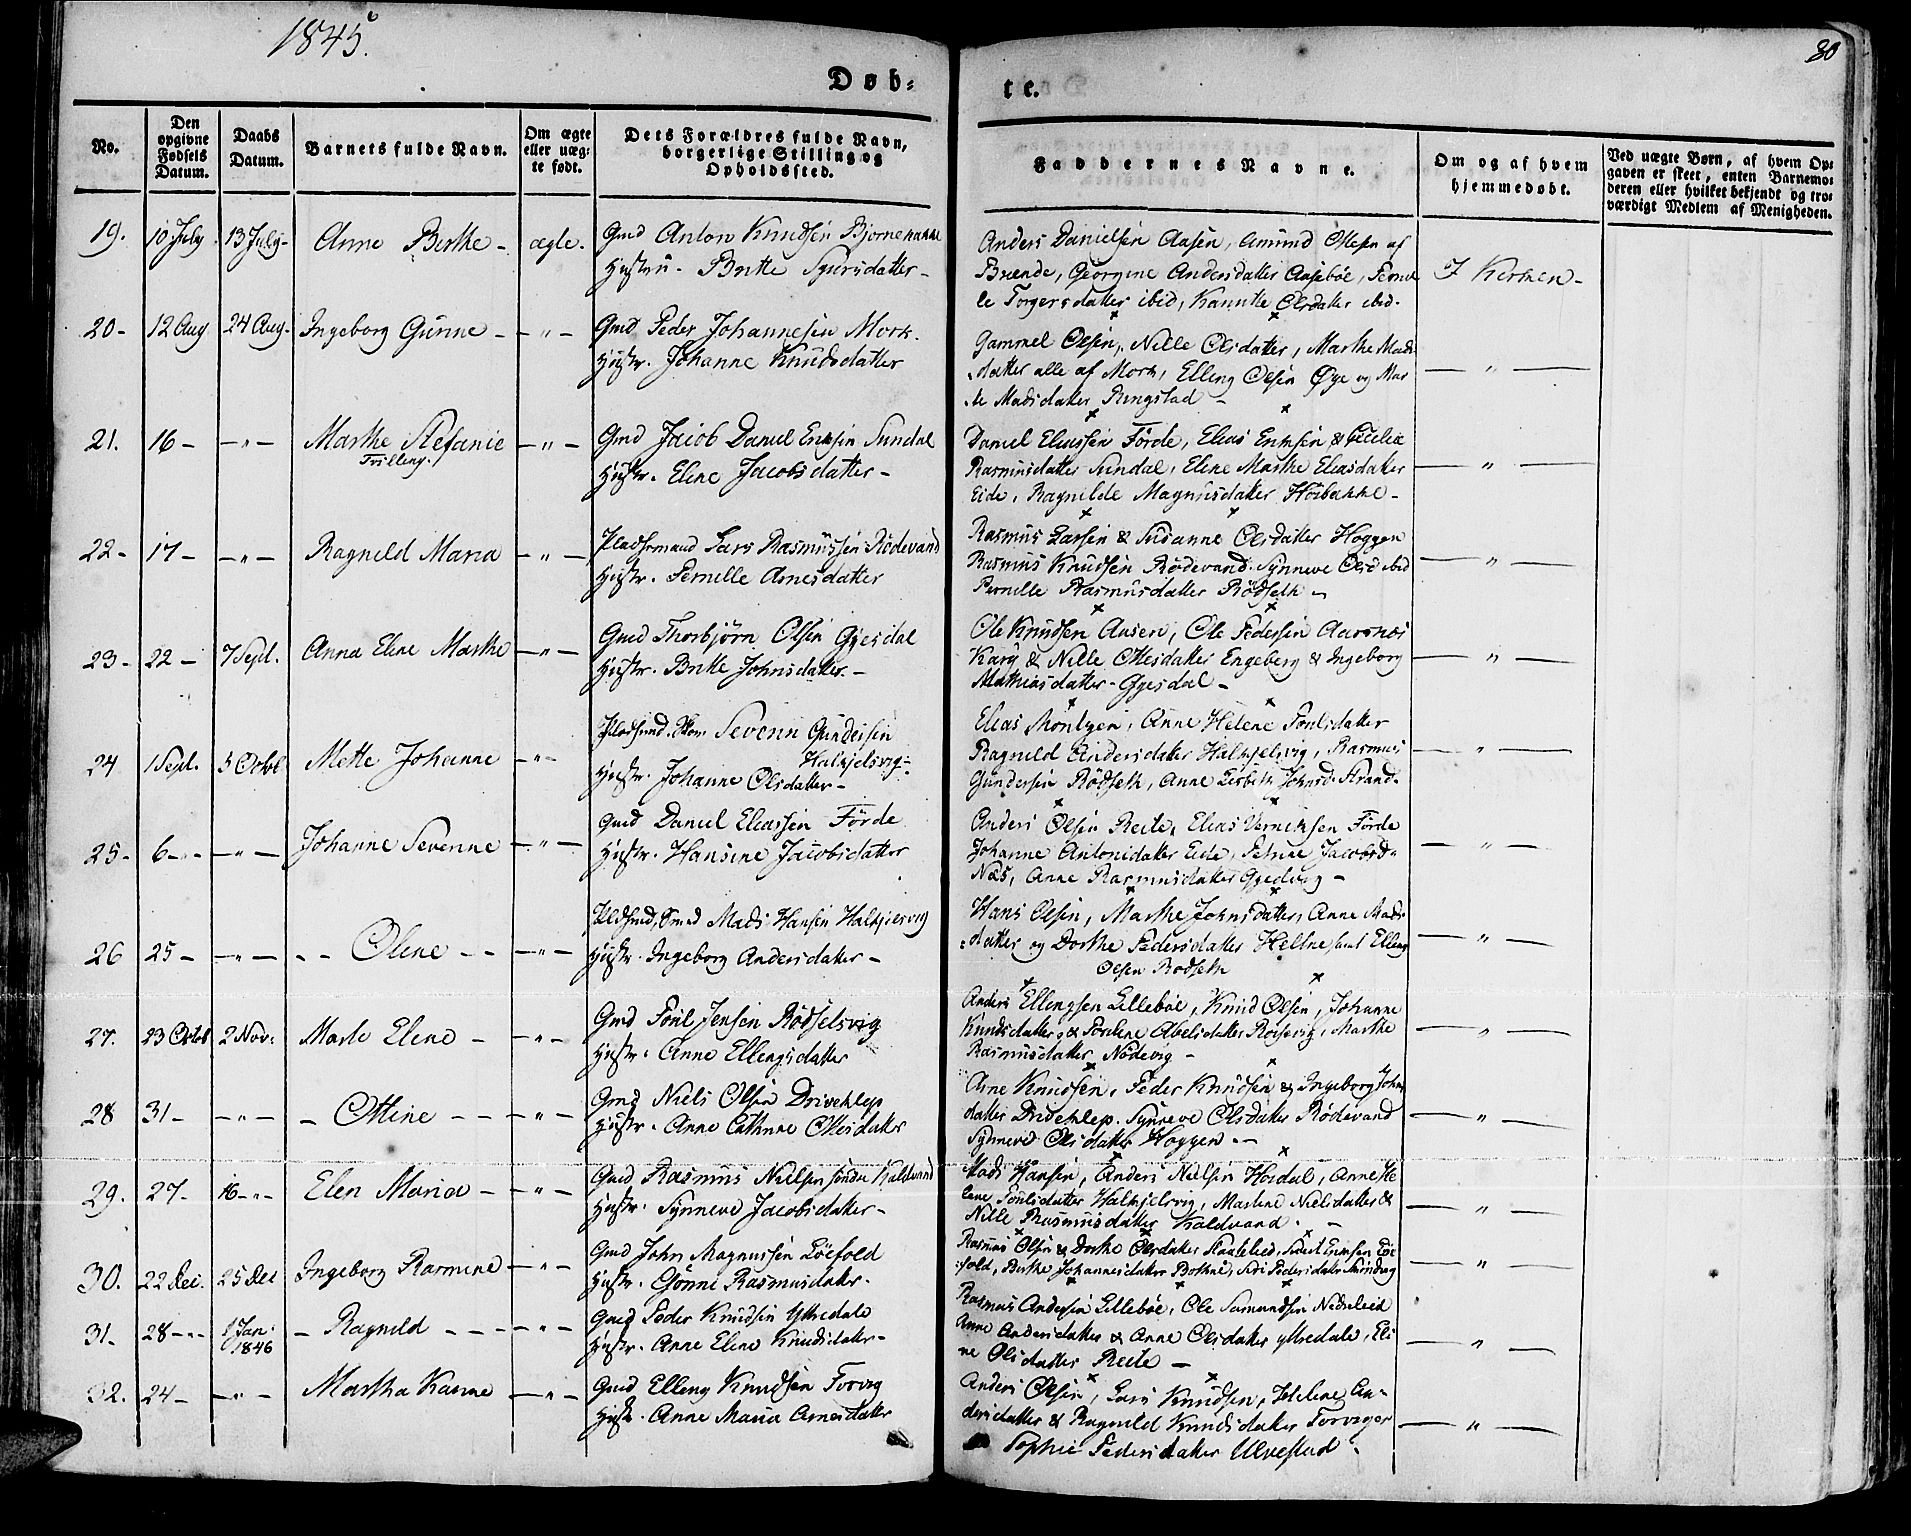 1845.
80
Døb=
te.
No.
Den opgivne Fødsels Datum.
Daabs Datum.
Barnets fulde Navn.
Om ægte eller uægte født.
Dets Forældres fulde Navn, borgerlige Stilling og Opholdssted.
Faddernes Navne.
Om og af hvem hjemmedøbt.
Ved uægte Børn, af hvem Opgaven er skeet, enten Barnemoderen eller hvilket bekjendt og troværdigt Medlem af Menigheden.
19. 10 July 13 July - Anne Berthe - ægte. Gmd Anton Knudsen
Hustru. Britte Sjursdatter -
Anders Danielsen Aasen, Amund Ottesen af
Brænde, Georgine Andersdatter Aasebøe, Pernil
le Torgersdatter ibid, Kannike Olsdatter ibid.
I Kirken -
20 - 12 Aug 24 Aug. Ingeborg Gunne - - " -
Gmd Peder Johannesen Mork.
Hustr. Johanne Knudsdatter
Gammel Olsen, Nille Olsdatter, Marthe Mads
datter alle af Mork, Elling Olsen Øye og Mar
te Madsdatter Ringstad -
- " -
21. 16 - - " - Marthe Stefanie - " -
Trilling.
Gmd Jacob Daniel Eriksen Sundal
Hustr. Eline Jacobsdatter -
Daniel Eliassen Förde, Elias Eriksen & Cecilie
Rasmusdatter Sundal, Eline Marthe Eliasdatter
Eide, Ragnilde Magnusdatter Höibakke -
- " -
22 - 17 - - " - Ragnild Maria - " -
Pladsemand Lars Rasmussen Rödevand
Hustr. Pernille Arnesdatter
Rasmus Larsen & Susanne Olsdatter Hoggen
Rasmus Knudsen Rödevand. Synneve Olsd ibid
Pernille Rasmusdatter Rödseth -
- " -
23 - 22 - 7 Sept. Anna Eline Marthe - " -
Gmd Thorbjörn Olsen Gyesdal
Hustr. Britte Johnsdatter. -
Ole Knudsen Aasen, Ole Pedersen Aarsnes
Kary & Nille Ottesdatter Engeberg & Ingeborg
Mathiasdatter - Gyesdal -
- " -
24 1 Sept. 5 Octbr Mette Johanne - " -
Severin Gundersen
Halkjelsvig -
Hustr. Johanne Olsdatter -
Elias Möntgen, Anne Helene Poulsdatter
Ragnild Andersdatter Halkjelsvig, Rasmus
Gundersen Rödseth, Anne Lisbeth Johnsd. Strand.
- " -
25 - 6 - " - - " - Johanne Severine - " -
Gmd Daniel Eliassen Förde
Hustr. Hansine Jacobsdatter
Anders Olsen Reite, Elias Förde
Johanne Antonidatter Eide, Petrine Jacobsd -
Næs, Anne Rasmusdatter Gyedvig -
- " -
26 25 - - " - - - Oline - - - " -
Pladsmd, Smed Mads Hansen Halkjelsvig
Hustr. Ingeborg Andersdatter -
Hans Olsen, Marthe Johnsdatter, Anne Mads
datter og Dorthe Pedersdatter Hellne samt Elling
Olsen Rödseth
- " -
27. 23 Octbr 2 Nov. Marte Elene - - " -
Gmd Poul Jensen Rödselsvig
Hustr. Anne Ellingsdatter
Anders Ellingsen Lillebøe, Knud Olsen, Johanne
Knudsdatter & Abelsdatter, Marthe
Rasmusdatter Nödevig -
- " -
28 31 - - " - - Ottine - - - " -
Gmd Niels Olsen Driveklep
Hustr. Anne Cathrine Ottesdatter
Arne Knudsen, Peder Knudsen & Ingeborg Johns
datter Driveklep. Synneve Olsdatter Rödevand
Synneve Olsdatter Hoggen. -
- " -
29. 27 - 16 - " - Elen Maria - - " -
Gmd Rasmus Nielsen söndre Kaldvand
Hustr. Synneve Jacobsdatter -
Mads Hansen, Anders Nielsen Hordal, Anne He
lene Poulsdatter Halkjelsvig, Martine Nielsdatter &
Nille Rasmusdatter Kaldvand. -
- " -
30. 22 Dec. 25 Dec Ingeborg Rasmine - " -
Gmd John Magnussen Löefold
Hustr. Gönne Rasmusdatter.
Rasmus Olsen & Dorthe Olsdatter, Sivert Eriksen Löe
fold, Berthe Johannesdatter, Siri Pedersdatter
- " -
31 - 28 - " - 1 Jan. 1846 - Ragnild - - - - " -
Gmd Peder Knudsen Yttredale
Hustr. Anne Eline Knudsdatter -
Rasmus Andersen Lillebøe, Ole Samundsen Nedreleid
Anne Andersdatter & Anne Olsdatter Yttredale, Eli
ne Olsdatter Reite -
- " -
32. 24 - - " - Martha Karine - " -
Gmd Elling Knudsen Torvig
Hustr. Anne Maria Arnesdatter
Anders Olsen, Lars Knudsen, Helene An-
dersdatter & Ragnild Knudsdatter Torviger
Sophie Pedersdatter Ulvestad.
- " -